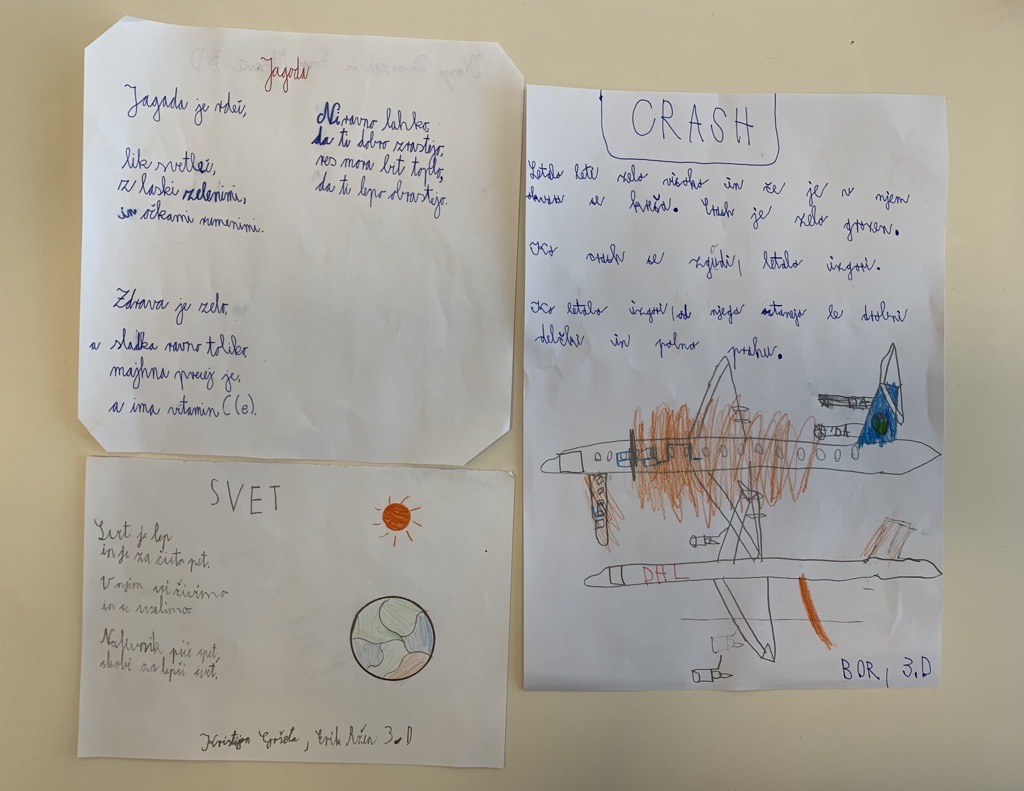 Jagoda
Jagada je rdeč,
lik svetleč,
z laski zelenimi,
in očkami rumenimi.
Zdrava je zelo,
a sladka ravno toliko,
majhna precej je,
a ima vitamin C(e).
Ni ravno lahko,
da ti dobro zrastejo,
res mora bit toplo,
da ti lepo obrastejo.
CRASH
Letalo leti zelo visoko in že je v njem
se kriči. Crash je zelo grozen.
Ko crash se zgudi, letalo izgori.
Ko letalo izgori, od njega ostanejo le drobni
delčki in polno prahu.
DA
DA
DHL
BOR, 3.D
SVET
Svet je lep
in je za čista pet.
V njem vsi živimo
in se veselimo.
piše spet,
skrbi za lepši svet.
Kristijan Erik 3.D